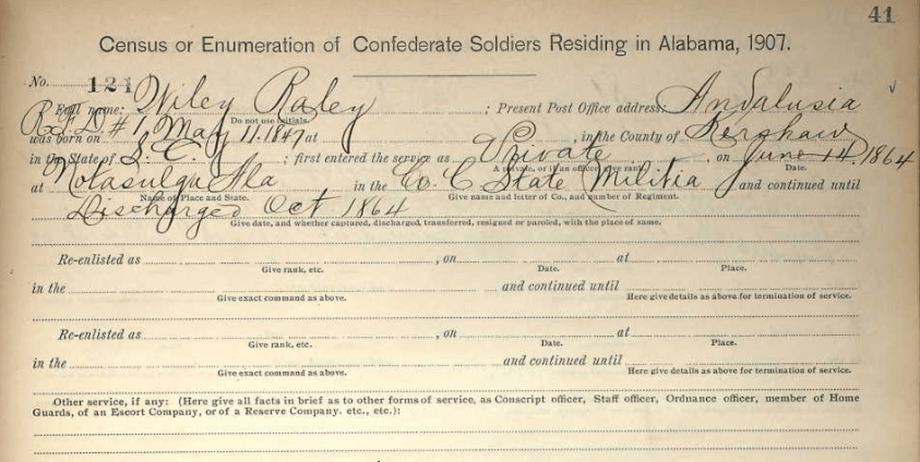 41
Census or Enumeration of Confederate Soldiers Residing in Alabama, 1907.
No. 121
Full name: Wiley Raley ; Present Post Office address: Andalusia
Do not use initials.
R.F.D #1 was born on May 11. 1847 at , in the County of Kershaw
in the State of S. C. ; first entered the service as Private , on June 14, 1864
A private, or if an officer, give rank. Date.
at Notasulga Ala in the Co. C State Militia and continued until
Name of Place and State. Give name and letter of Co., and number of Regiment.
Discharged Oct 1864
Give date, and whether captured, discharged, transferred, resigned or paroled, with the place of same.
Re-enlisted as , on at
Give rank, etc. Date. Place.
in the and continued until
Give exact command as above. Here give details as above for termination of service.
Re-enlisted as , on at
Give rank, etc. Date. Place.
in the and continued until
Give exact command as above. Here give details as above for termination of service.
Other service, if any: (Here give all facts in brief as to other forms of service, as Conscript officer, Staff officer, Ordnance officer, member of Home
Guards, of an Escort Company, or of a Reserve Company. etc., etc.):